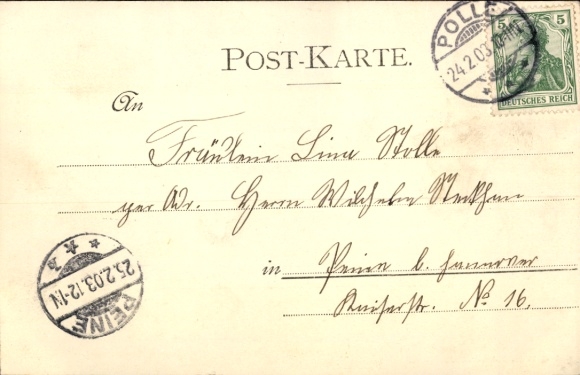 POST-KARTE.
POLLE
24.2.03
5 5
DEUTSCHES REICH
An
Fräulein Lina Stolle
per Adr. Herrn Wilhelm
in Peine b. Hannover
Kaiserstr. No 16.
25.2.03.12-1N
PEINE